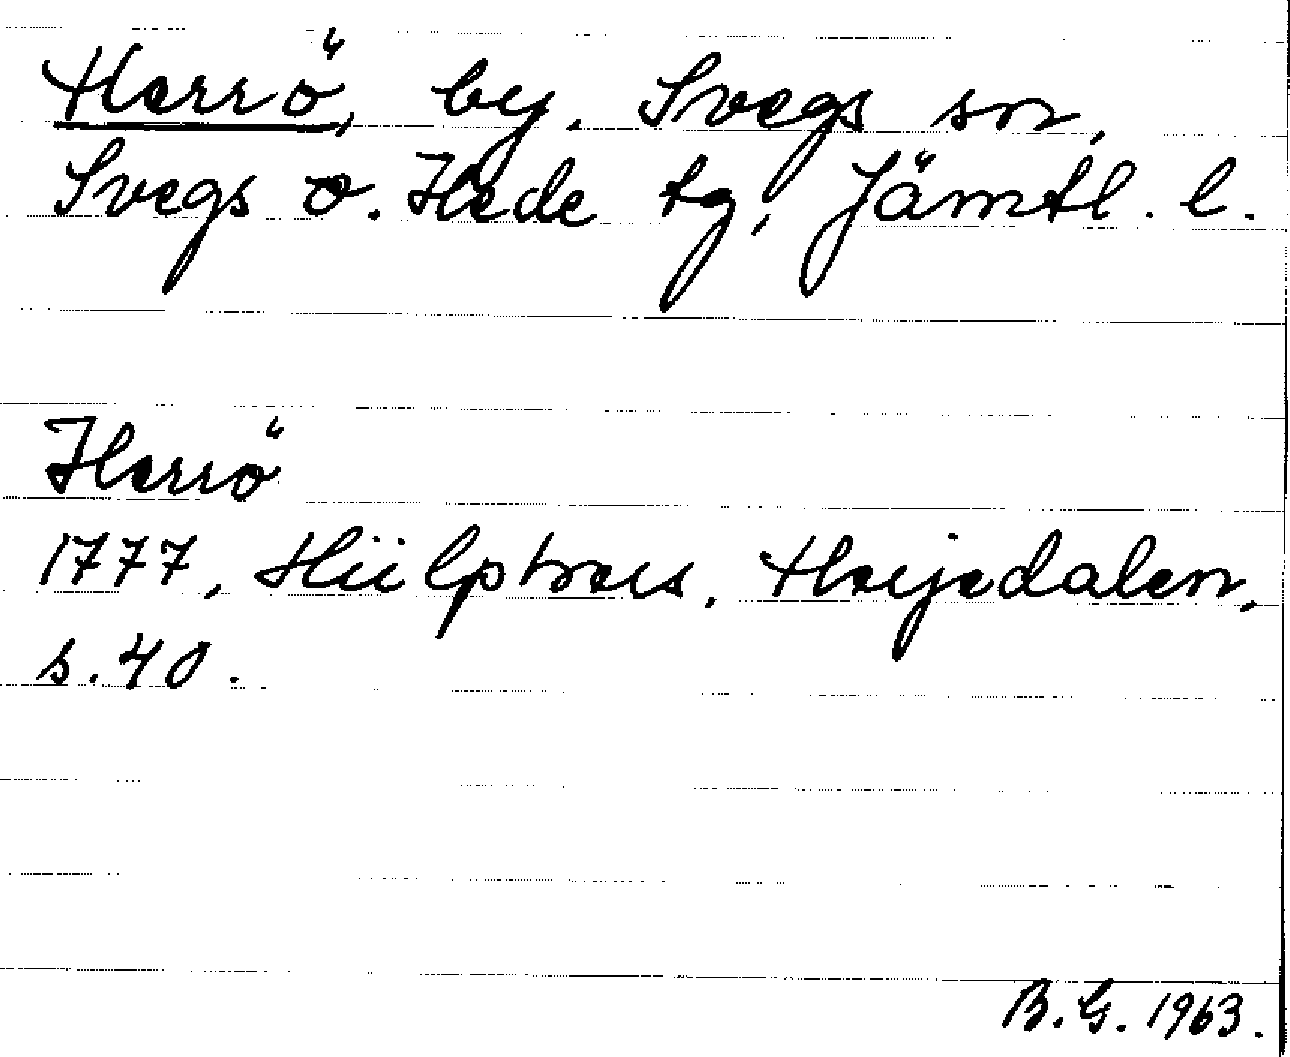 Herrö, by, Svegs sn,
Svegs o. Hede tg, Jämtl. l.
Herrö
1777, Hülphers, Herjedalen,
s. 40.
B. G. 1963.